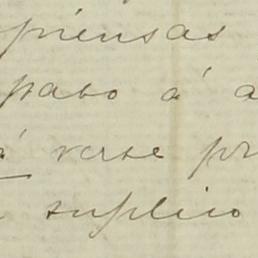 piensas
paso á a
á verse pr
suplico